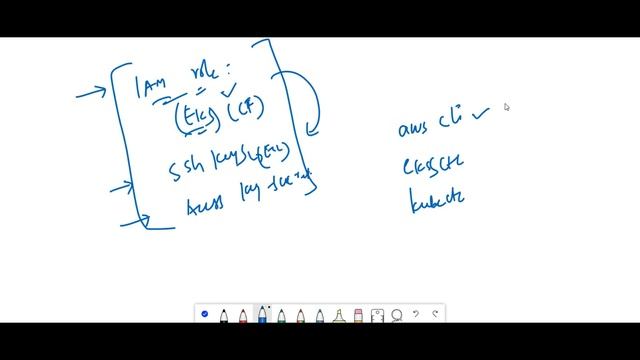 IAM role :
(EKS) (CF)
ssh keys
Access key
aws cli
eksctl
kubectl